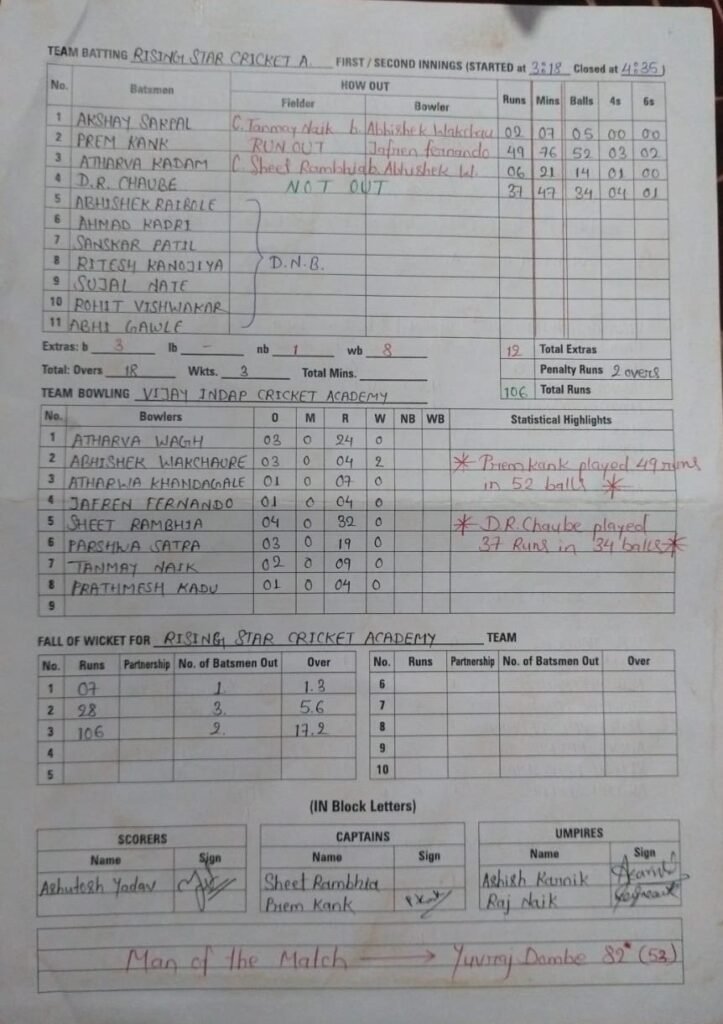 TEAM BATTING RISING STAR CRICKET A. FIRST / SECOND INNINGS (STARTED at 3:18 Closed at 4:35)
No. Batsmen HOW OUT Runs Mins Balls 4s 6s
Fielder Bowler
1 AKSHAY SAKPAL C. Tanmay Naik b. Abhishek Wakchau 02 07 05 00 00
2 PREM KANK RUN OUT Jafren fernando 49 76 52 03 02
3 ATHARVA KADAM C. Sheet Rambhia b. Abhishek W. 06 21 14 01 00
4 D.R. CHAUBE NOT OUT 37 47 34 04 01
5 ABHISHEK RAIBOLE
6 AHMAD KADRI
7 SANSKAR PATIL
8 RITESH KANOJIYA D.N.B.
9 SUJAL NATE
10 ROHIT VISHWAKAR
11 ABHI GAWLE
Extras: b 3 lb - nb 1 wb 8 12 Total Extras
Total: Overs 18 Wkts. 3 Total Mins. Penalty Runs 2 overs
106 Total Runs
TEAM BOWLING VIJAY INDAP CRICKET ACADEMY
No. Bowlers O M R W NB WB Statistical Highlights
1 ATHARVA WAGH 03 0 24 0
2 ABHISHEK WAKCHAURE 03 0 04 2 * Prem kank played 49 runs
3 ATHARWA KHANDAGALE 01 0 07 0 in 52 balls *
4 JAFREN FERNANDO 01 0 04 0
5 SHEET RAMBHIA 04 0 32 0 * D.R. Chaube played
6 PARSHWA SATRA 03 0 19 0 37 Runs in 34 balls *
7 TANMAY NAIK 02 0 09 0
8 PRATHMESH KADU 01 0 04 0
9
FALL OF WICKET FOR RISING STAR CRICKET ACADEMY TEAM
No. Runs Partnership No. of Batsmen Out Over No. Runs Partnership No. of Batsmen Out Over
1 07 1. 1.3 6
2 28 3. 5.6 7
3 106 2. 17.2 8
4 9
5 10
(IN Block Letters)
SCORERS CAPTAINS UMPIRES
Name Sign Name Sign Name Sign
Ashutosh Yadav Sheet Rambhia Ashish Karnik
Prem Kank Raj Naik
Man of the Match → Yuvraj Dambe 82* (53)